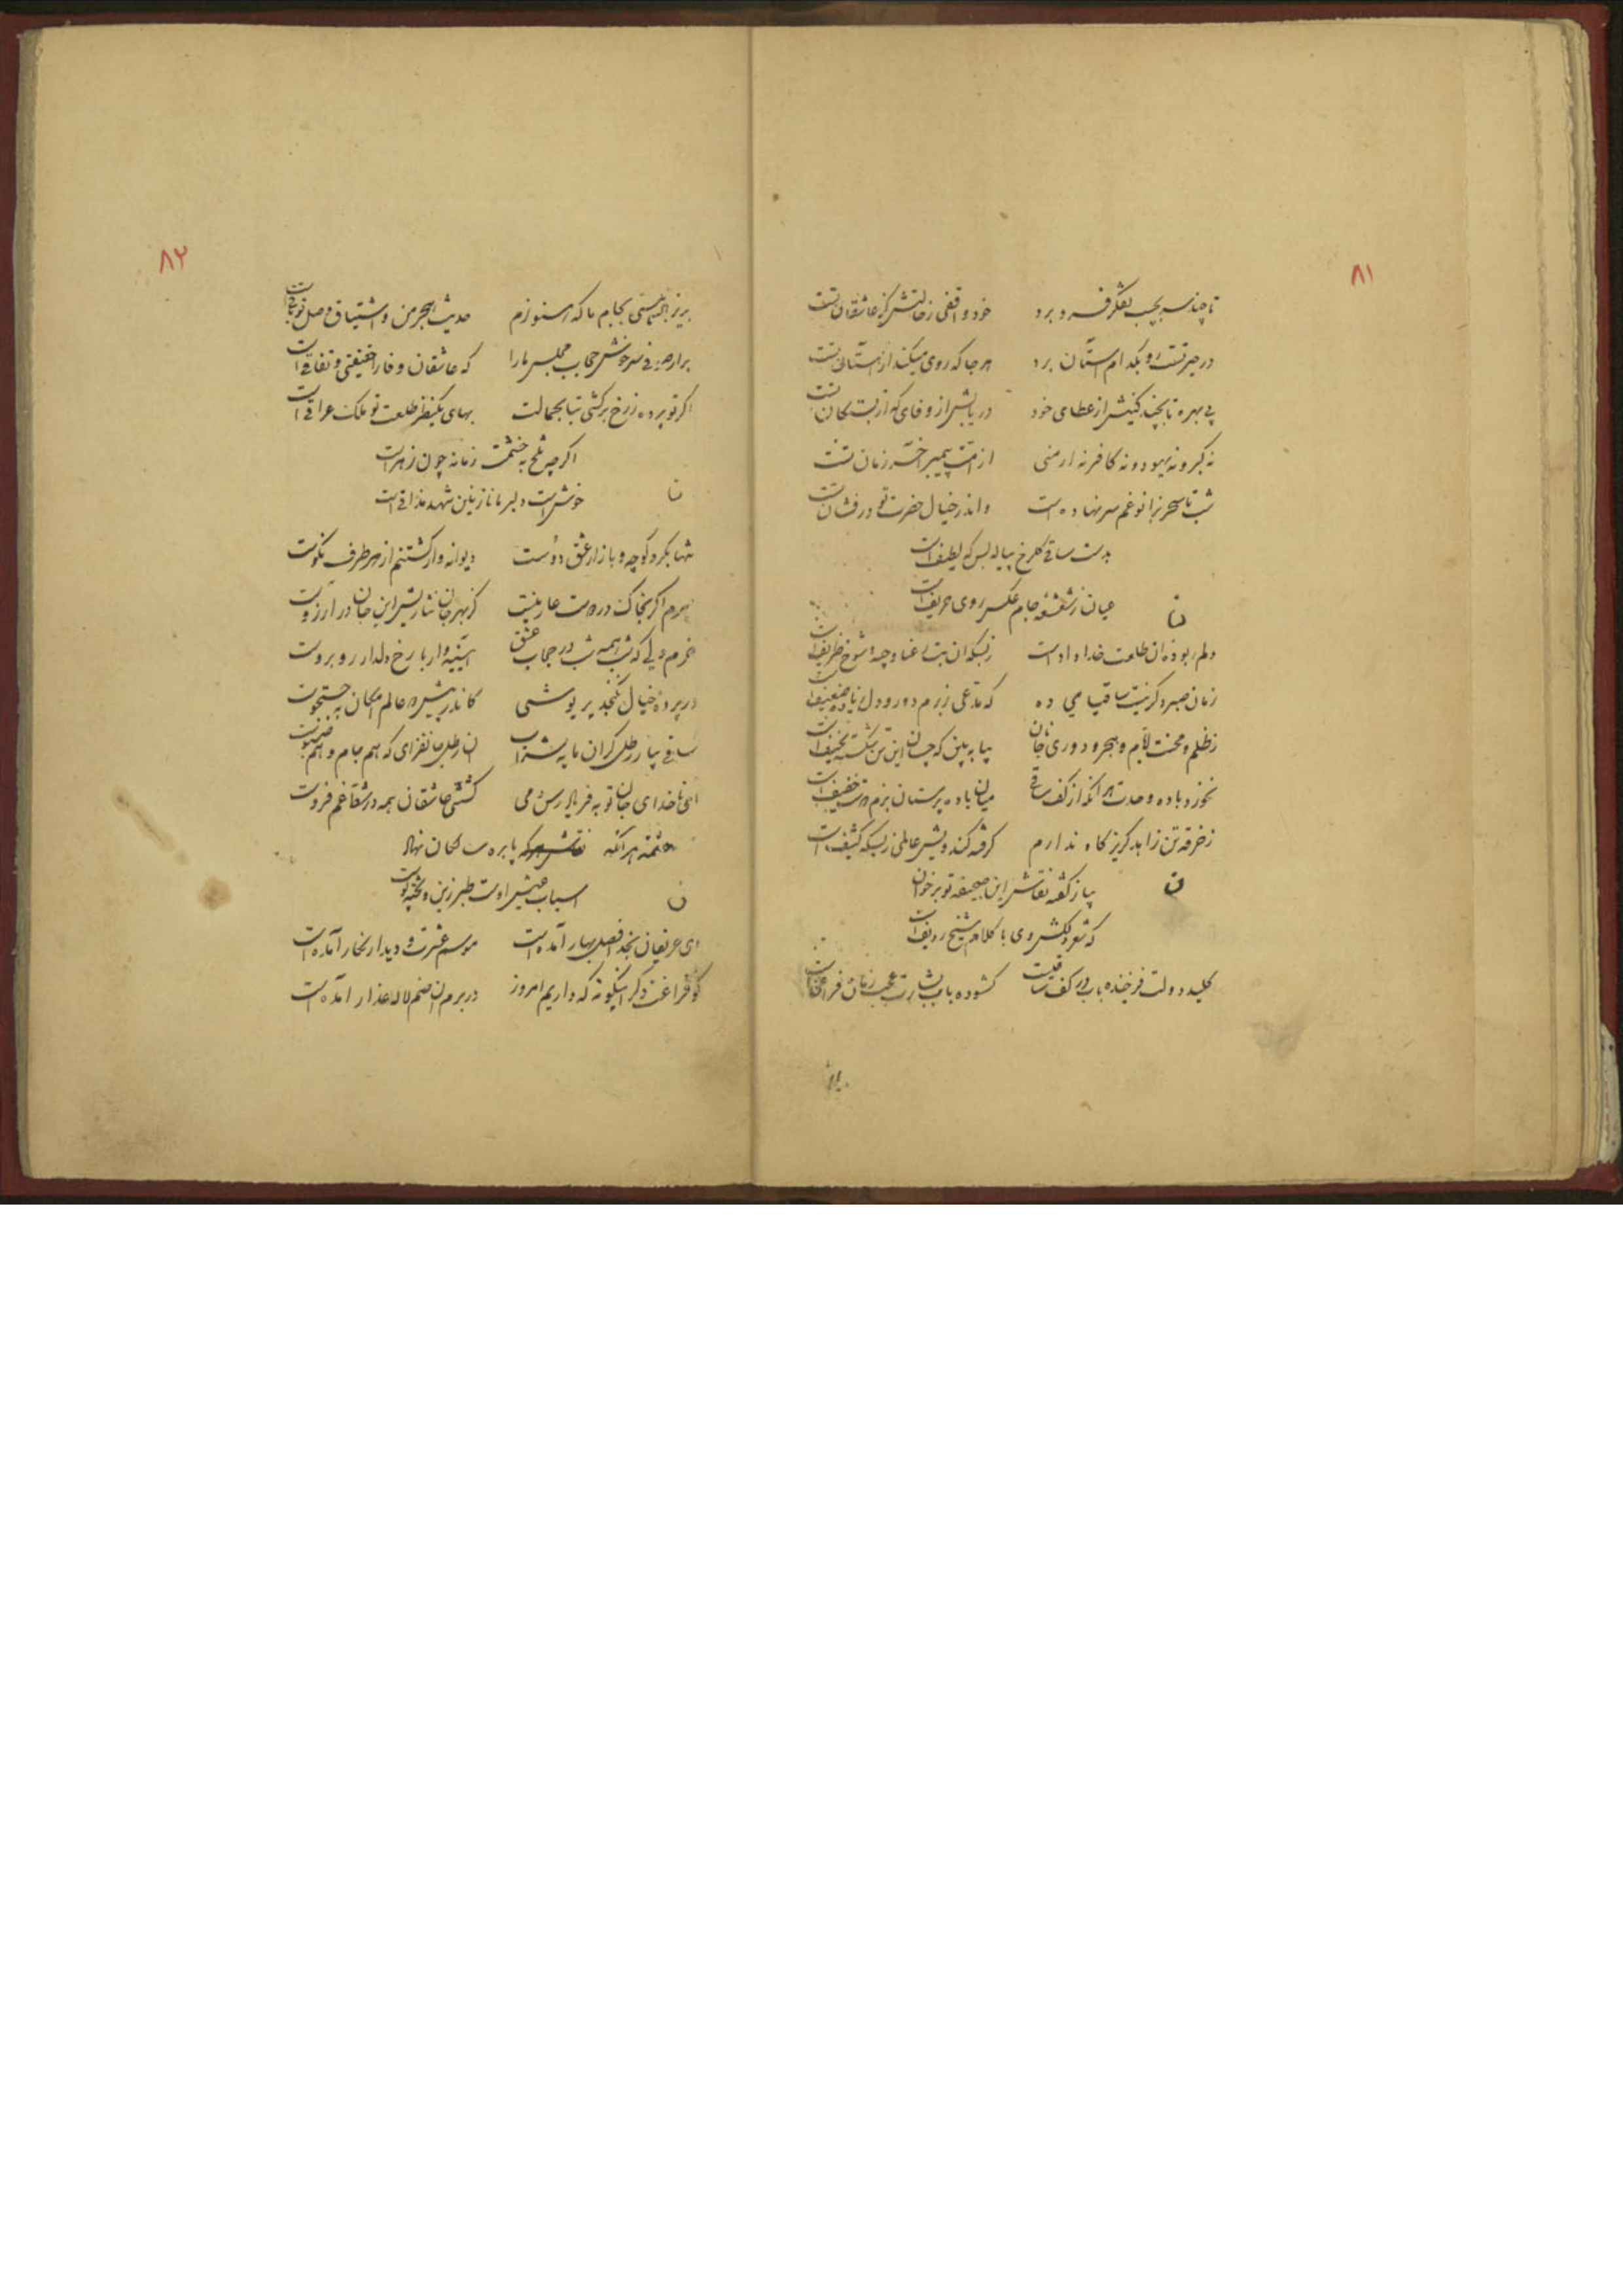 ٨١
تا چند سر بجیب تفکر فرو برد خود واقفی ز حالتش کز عاشقان تست
در حیرتست رو بکدام آستان برد هر جا که روی میکند از آستان تست
بی بهره تا بچند کنیش از عطای خود دریابش از وفای که از بستکان تست
نه کبر و نه یهود و نه کافر نه ارمنی از امت پیمبر آخر زمان تست
شب تا سحر بزانو غم سر نهاده است و اندر خیال حضرت تو در فشان تست
بدست ساقی کلرخ پیاله بس که لطیف است
عیان ز شعشعه جام عکس روی حریف است
دلم ربوده ان طلعت خداداد است ز بسکه ان بت رعنا وجه شوخ ظریف است
زمان صبر دکر نیست ساقیا می ده که مدعی ز برم دور و دل زیاده ضعیف است
ز ظلم و محنت ایام و هجر و دوری جانان بیا به بین که چسان این تن شکسته نحیف است
نخورد باده وحدت هر آنکه از کف ساقی میان باده پرستان بزم دوست خفیف است
ز خرقه تن زاهد کریزکاه ندارم کرفته کند ویش عاملی ز بسکه کثیف است
بیا ز کفته نقاش این صحیفه تو برخوان
که شعر دلکش وی با کلام شیخ ردیف است
کلید دولت فرخنده باب در کف ساقیست کشوده باب بشارت عجب زمان فراقست
٨٢
بریز می بجام ما که هنوزم حدیث هجر من و اشتیاق وصل تو باقیست
برآر صوفی سرخوش حجاب مجلس ما را که عاشقان وفا را حقیقتی و نفاقی است
اکر تو پرده ز رخ برکشی بتا بجمالت بهای یکنظر طلعت تو ملک عراقی است
اکر چه تلخ به خشمت زمانه چون زهر است
خوش است دلبر ما نازنین شهد مذاقی است
شبها بکرد کوچه و بازار عشق دوست دیوانه وار کشتنم از هر طرف نکوست
سرم اکر بخاک در دوست عار نیست کز بهر جان نثاریش این جان در آرزوست
خرم دلی که همه شب در حجاب عشق آیینه وار با رخ دلدار روبروست
در پرده خیال نکنجد پریوشی کاندر پیش در عالم امکان به جستجوست
ساقی بیار رطل کران مایه شراب ان رطل جانفزای که هم جام و هم سبوست
ای ناخدای جان تو به فریاد رس دمی کشتی عاشقان همه در بحر غم فروست
هر آنکه پا بره لامکان نهاد
اسباب عیش اوست طبرزین و تخته پوست
ای حریفان بخدا فصل بهار آمده است موسم عشرت و دیدار نکار آمده است
کو فراغت دکر اینکونه که داریم امروز در برم ان صنم لاله عذار آمده است